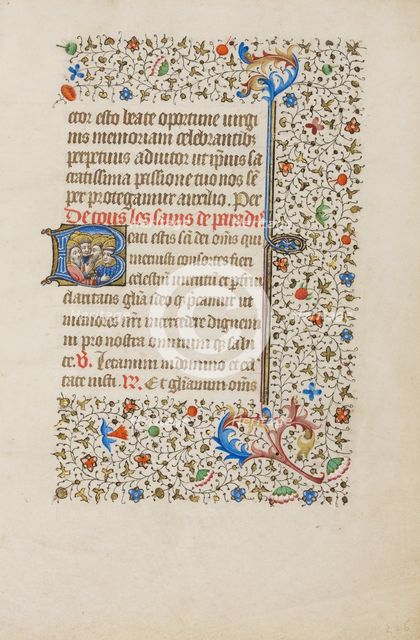 ctor esto beate oportune virgi
nis memoriam celebrantibus
perpetuus adiutor ut ipsius sa
cratissima passione tuo nos sem
per protegamur auxilio. Per
De tous les sains de paradis
Beati estis sancti dei omnes qui
meruisti consortes fieri
celestium virtutum et
claritatis gloria ideo precamur ut
memores nostri intercedere dignemi
ni pro nostra omnium que salu
te. V. Letamini in domino et exul
tate iusti. R. Et gloriamini omnes
226